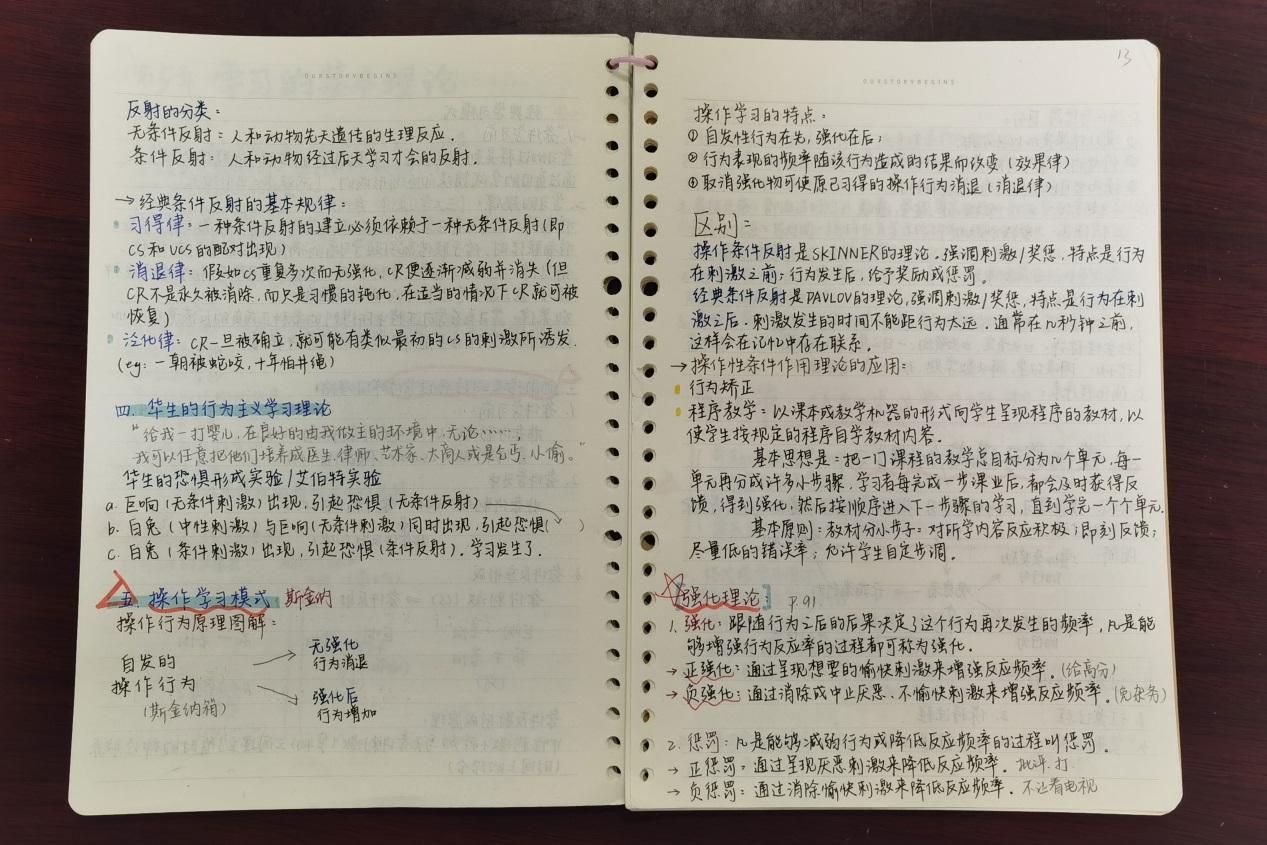 OURSTORYBEGINS
反射的分类：
无条件反射：人和动物先天遗传的生理反应.
条件反射：人和动物经过后天学习才会的反射.
→经典条件反射的基本规律：
习得律：一种条件反射的建立必须依赖于一种无条件反射(即
CS和UCS的配对出现)
消退律：假如CS重复多次而无强化，CR便逐渐减弱并消失(但
CR不是永久被消除，而只是习惯的钝化，在适当的情况下CR就可被
恢复)
泛化律：CR一旦被确立，就可能有类似最初的CS的刺激所诱发.
(eg：一朝被蛇咬，十年怕井绳)
四. 华生的行为主义学习理论
“给我一打婴儿，在良好的由我做主的环境中，无论……，
我可以任意把他们培养成医生、律师、艺术家、大商人或是乞丐、小偷。”
华生的恐惧形成实验/艾伯特实验
a. 巨响(无条件刺激)出现，引起恐惧(无条件反射)
b. 白兔(中性刺激)与巨响(无条件刺激)同时出现，引起恐惧( )
c. 白兔(条件刺激)出现，引起恐惧(条件反射)，学习发生了.
五. 操作学习模式 斯金纳
操作行为原理图解：
自发的
操作行为
(斯金纳箱)
无强化
行为消退
强化后
行为增加
13
OURSTORYBEGINS
操作学习的特点：
① 自发性行为在先，强化在后；
② 行为表现的频率随该行为造成的结果而改变(效果律)
③ 取消强化物可使原已习得的操作行为消退(消退律)
区别：
操作条件反射是SKINNER的理论。强调刺激/奖惩，特点是行为
在刺激之前；行为发生后，给予奖励或惩罚。
经典条件反射是PAVLOV的理论，强调刺激/奖惩，特点是行为在刺
激之后．刺激发生的时间不能距行为太远．通常在几秒钟之前，
这样会在记忆中存在联系．
→操作性条件作用理论的应用：
行为矫正
程序教学：以课本或教学机器的形式向学生呈现程序的教材，以
使学生按规定的程序自学教材内容。
基本思想是：把一门课程的教学总目标分为几个单元，每一
单元再分成许多小步骤，学习者每完成一步课业后，都会及时获得反
馈，得到强化，然后按顺序进入下一步骤的学习，直到学完一个个单元.
基本原则：教材分小步子；对所学内容反应积极；即刻反馈；
尽量低的错误率；允许学生自定步调。
强化理论： P.91
1. 强化：跟随行为之后的后果决定了这个行为再次发生的频率，凡是能
够增强行为反应率的过程都可称为强化．
→正强化：通过呈现想要的愉快刺激来增强反应频率。(给高分)
→负强化：通过消除或中止厌恶、不愉快刺激来增强反应频率。(免杂务)
2. 惩罚：凡是能够减弱行为或降低反应频率的过程叫惩罚。
→ 正惩罚：通过呈现厌恶刺激来降低反应频率．批评．打．
→ 负惩罚：通过消除愉快刺激来降低反应频率．不让看电视